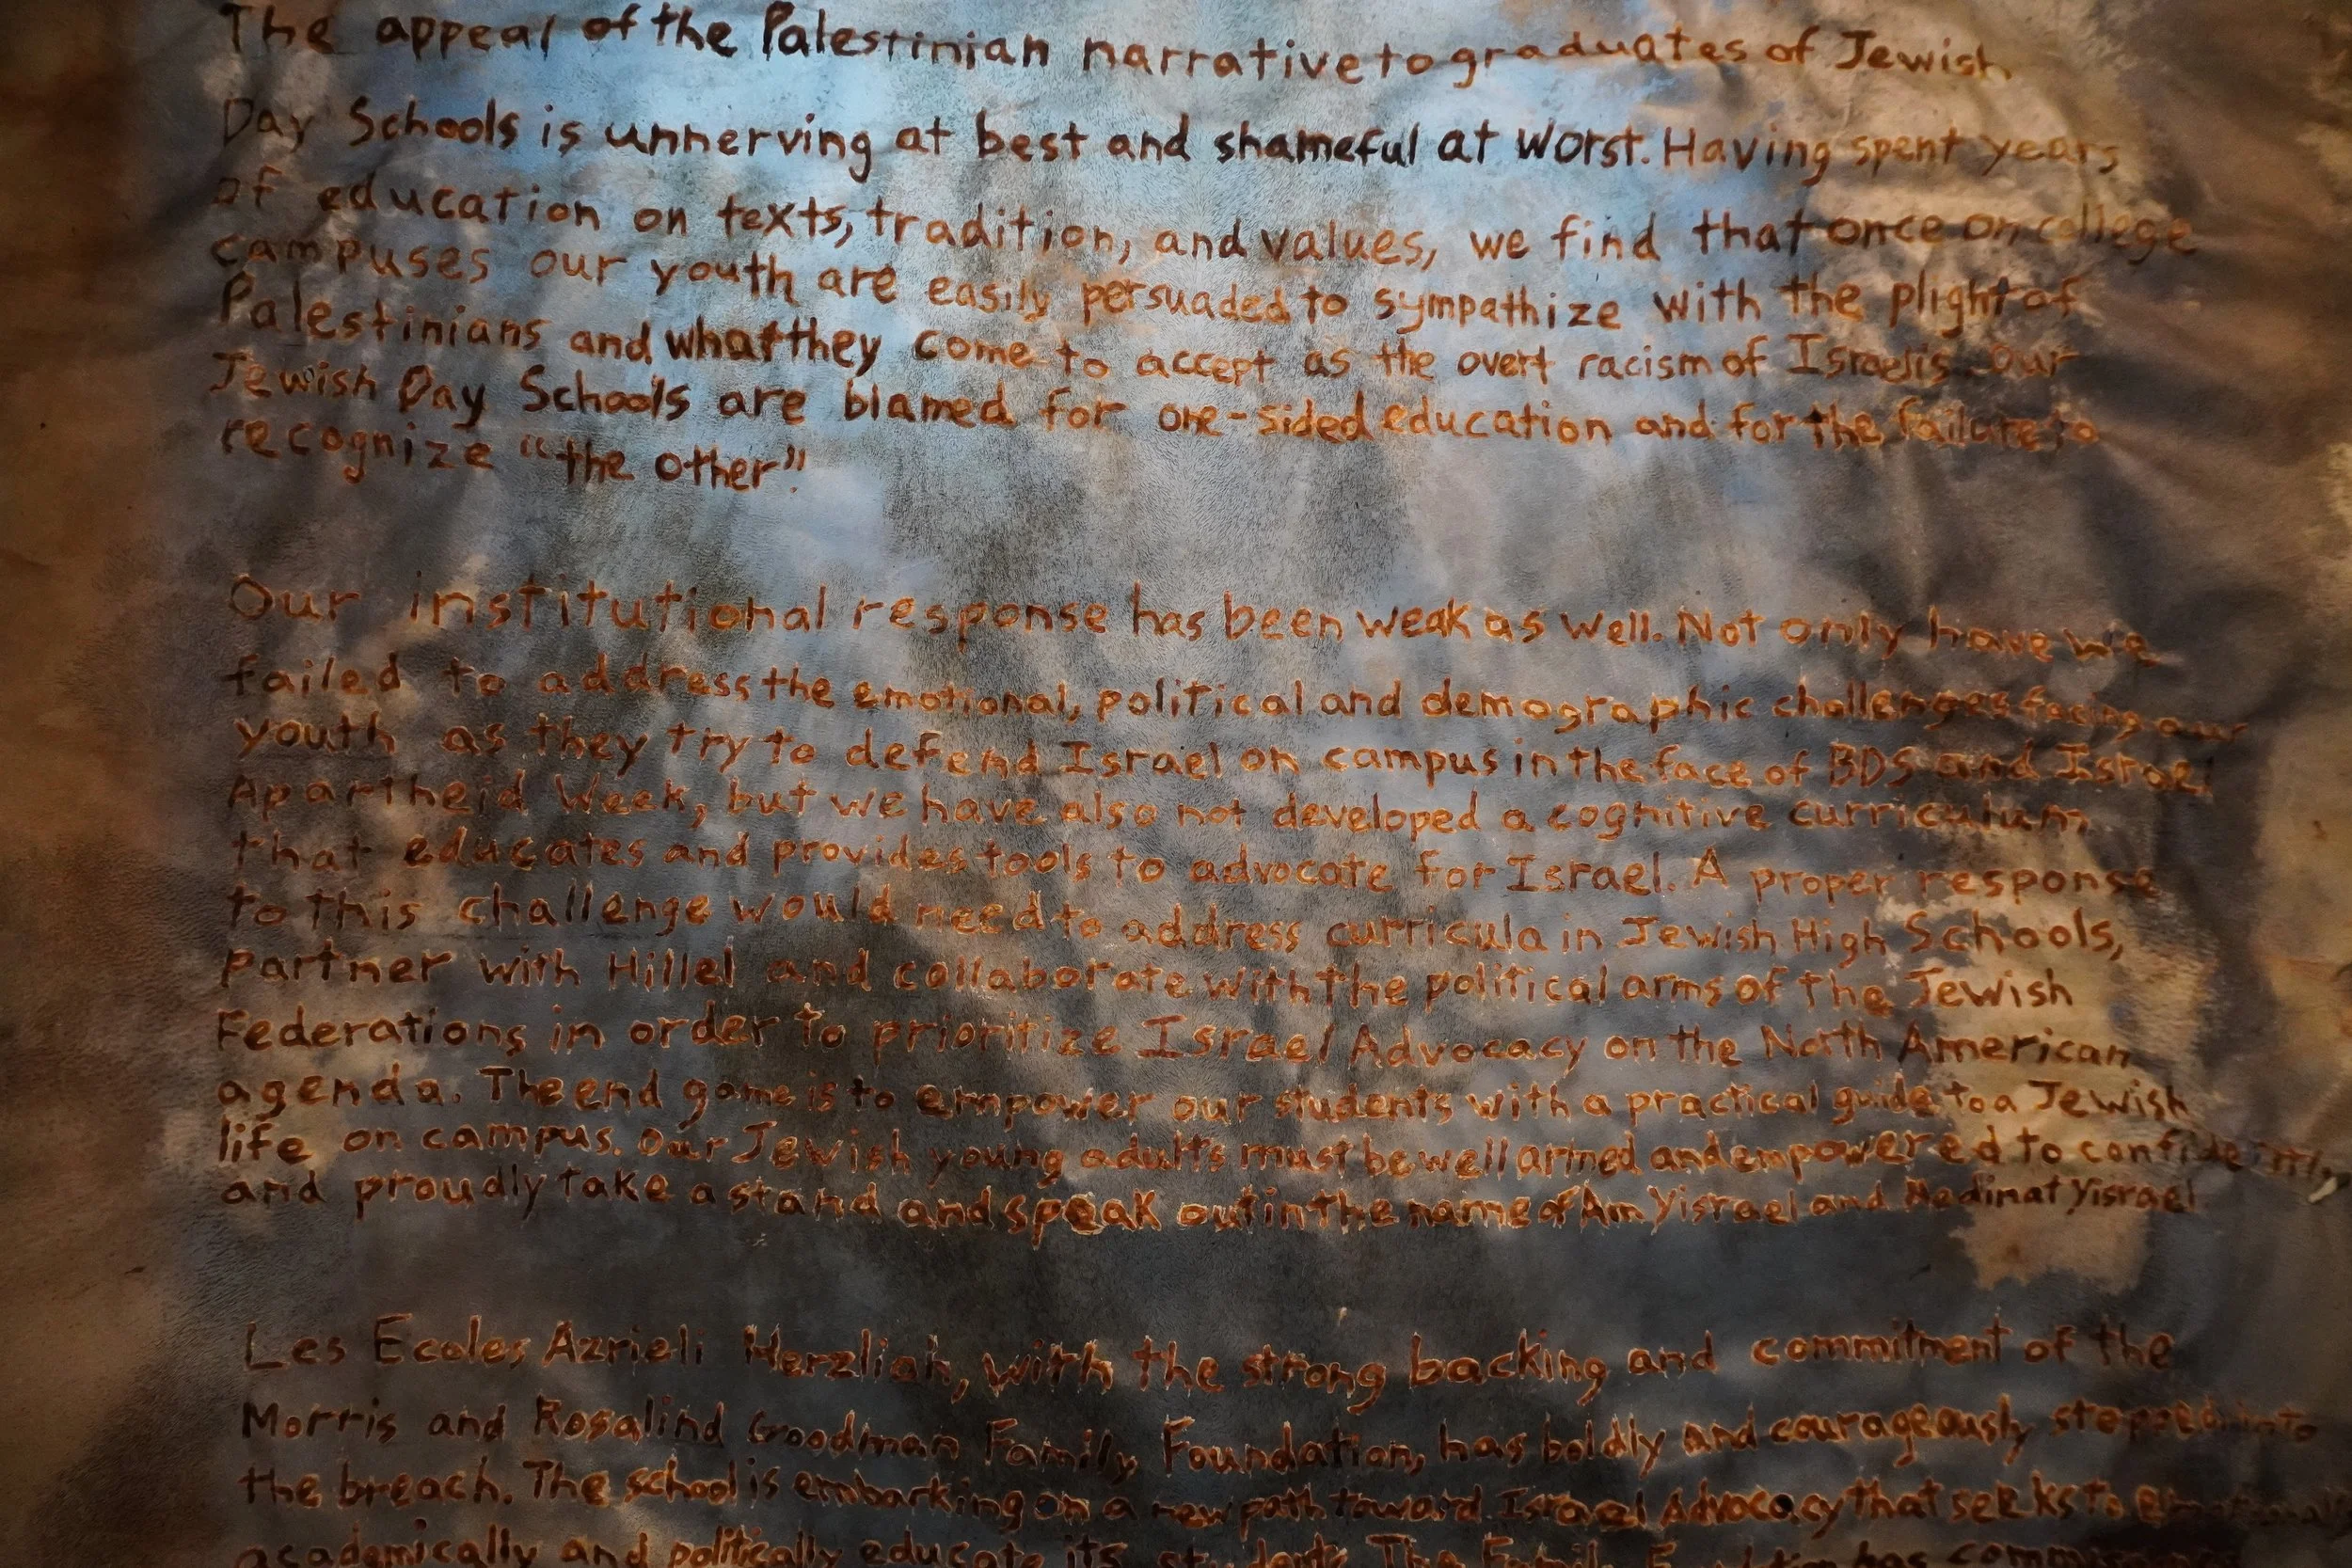 The appeal of the Palestinian narrative to graduates of Jewish
Day Schools is unnerving at best and shameful at worst. Having spent years
of education on texts, tradition, and values, we find that once on college
campuses our youth are easily persuaded to sympathize with the plight of
Palestinians and what they come to accept as the overt racism of Israelis. Our
Jewish Day Schools are blamed for one-sided education and for the failure to
recognize "the other".
Our institutional response has been weak as well. Not only have we
failed to address the emotional, political and demographic challenges facing our
youth as they try to defend Israel on campus in the face of BDS and Israel
Apartheid Week, but we have also not developed a cognitive curriculum
that educates and provides tools to advocate for Israel. A proper response
to this challenge would need to address curricula in Jewish High Schools,
partner with Hillel and collaborate with the political arms of the Jewish
Federations in order to prioritize Israel Advocacy on the North American
agenda. The end game is to empower our students with a practical guide to a Jewish
life on campus. Our Jewish young adults must be well armed and empowered to confidently
and proudly take a stand and speak out in the name of Am Yisrael and Medinat Yisrael
Les Ecoles Azrieli Herzliah, with the strong backing and commitment of the
Morris and Rosalind Goodman Family Foundation, has boldly and courageously stepped into
the breach. The school is embarking on a new path toward Israel Advocacy that seeks to
academically and politically educate its students. The Family has